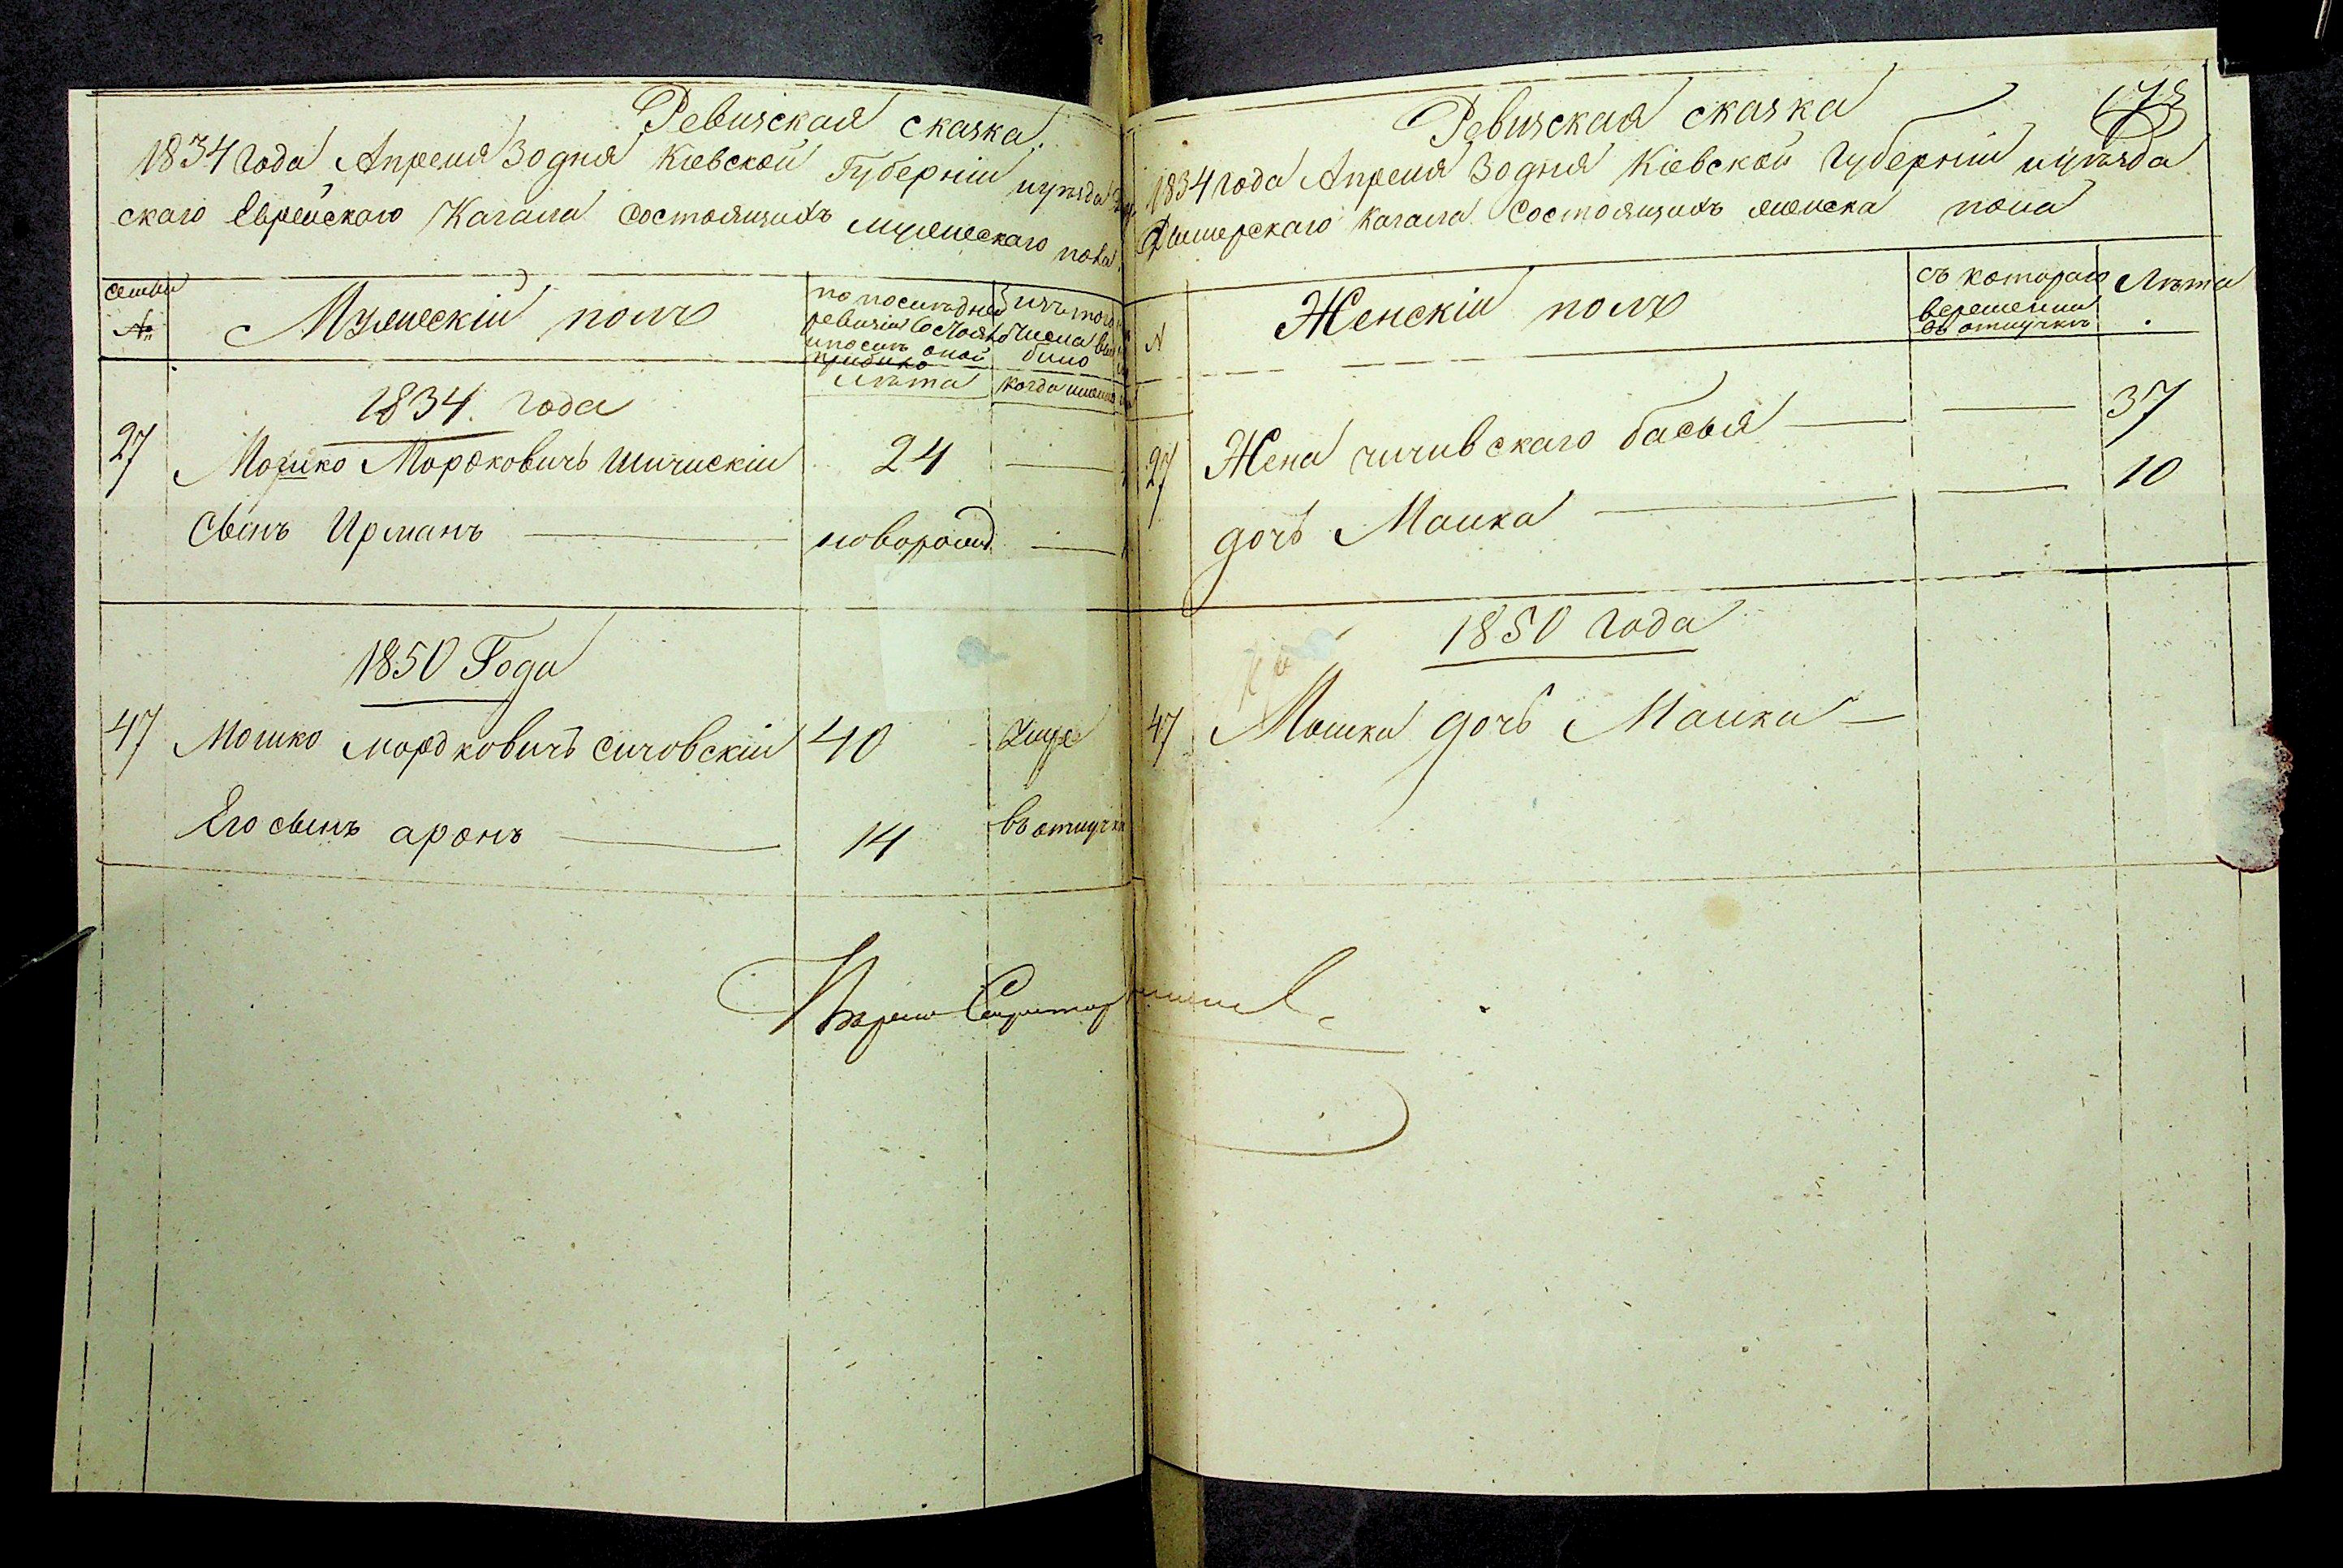 Ревизская сказка.
1834 года Апреля 30 дня Кіевской Губерніи иуезда
скаго Еврейскаго Кагала Состоящихъ мужескаго пола.
семьи
№
Мужескій полъ
по последней
ревизіи состояло
и после оной
прибыло
лета
Изъ того
числа вы
было
когда именно
1834 года
27 Мошко Мордковичъ Шичискіи 24
Сынъ Ирманъ новорожд
1850 Года
47 Мошко мордковичъ сичовскій 40
Его сынъ аронъ 14 въ отлучки
Ревизская сказка
1834 года Апреля 30 дня Кіевской Губерніи иуезда
Кагала Состоящихъ женска пола
№
Женскій полъ
съ котораго
веремении
въ отлучке
Лета
27 Жена чичивскаго басья 37
дочь Малка 10
1850 года
47 Мошки дочь Малка